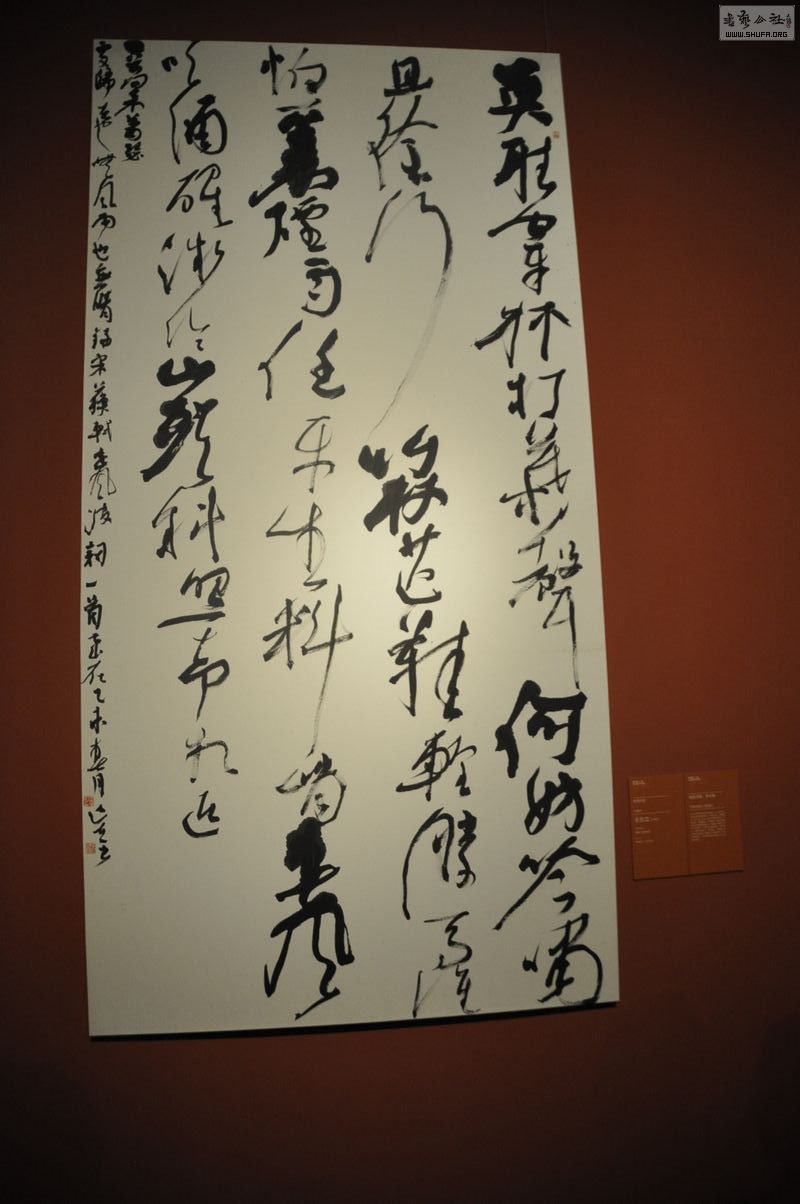 莫聽穿林打葉聲何妨吟嘯
且徐行竹杖芒鞋輕勝馬誰
怕一蓑煙雨任平生料峭春風
吹酒醒微冷山頭斜照却相迎
回首向來蕭瑟
處歸去也無風雨也無晴錄宋蘇軾定風波詞一首歲在乙未春月
書藝公社
WWW.SHUFA.ORG